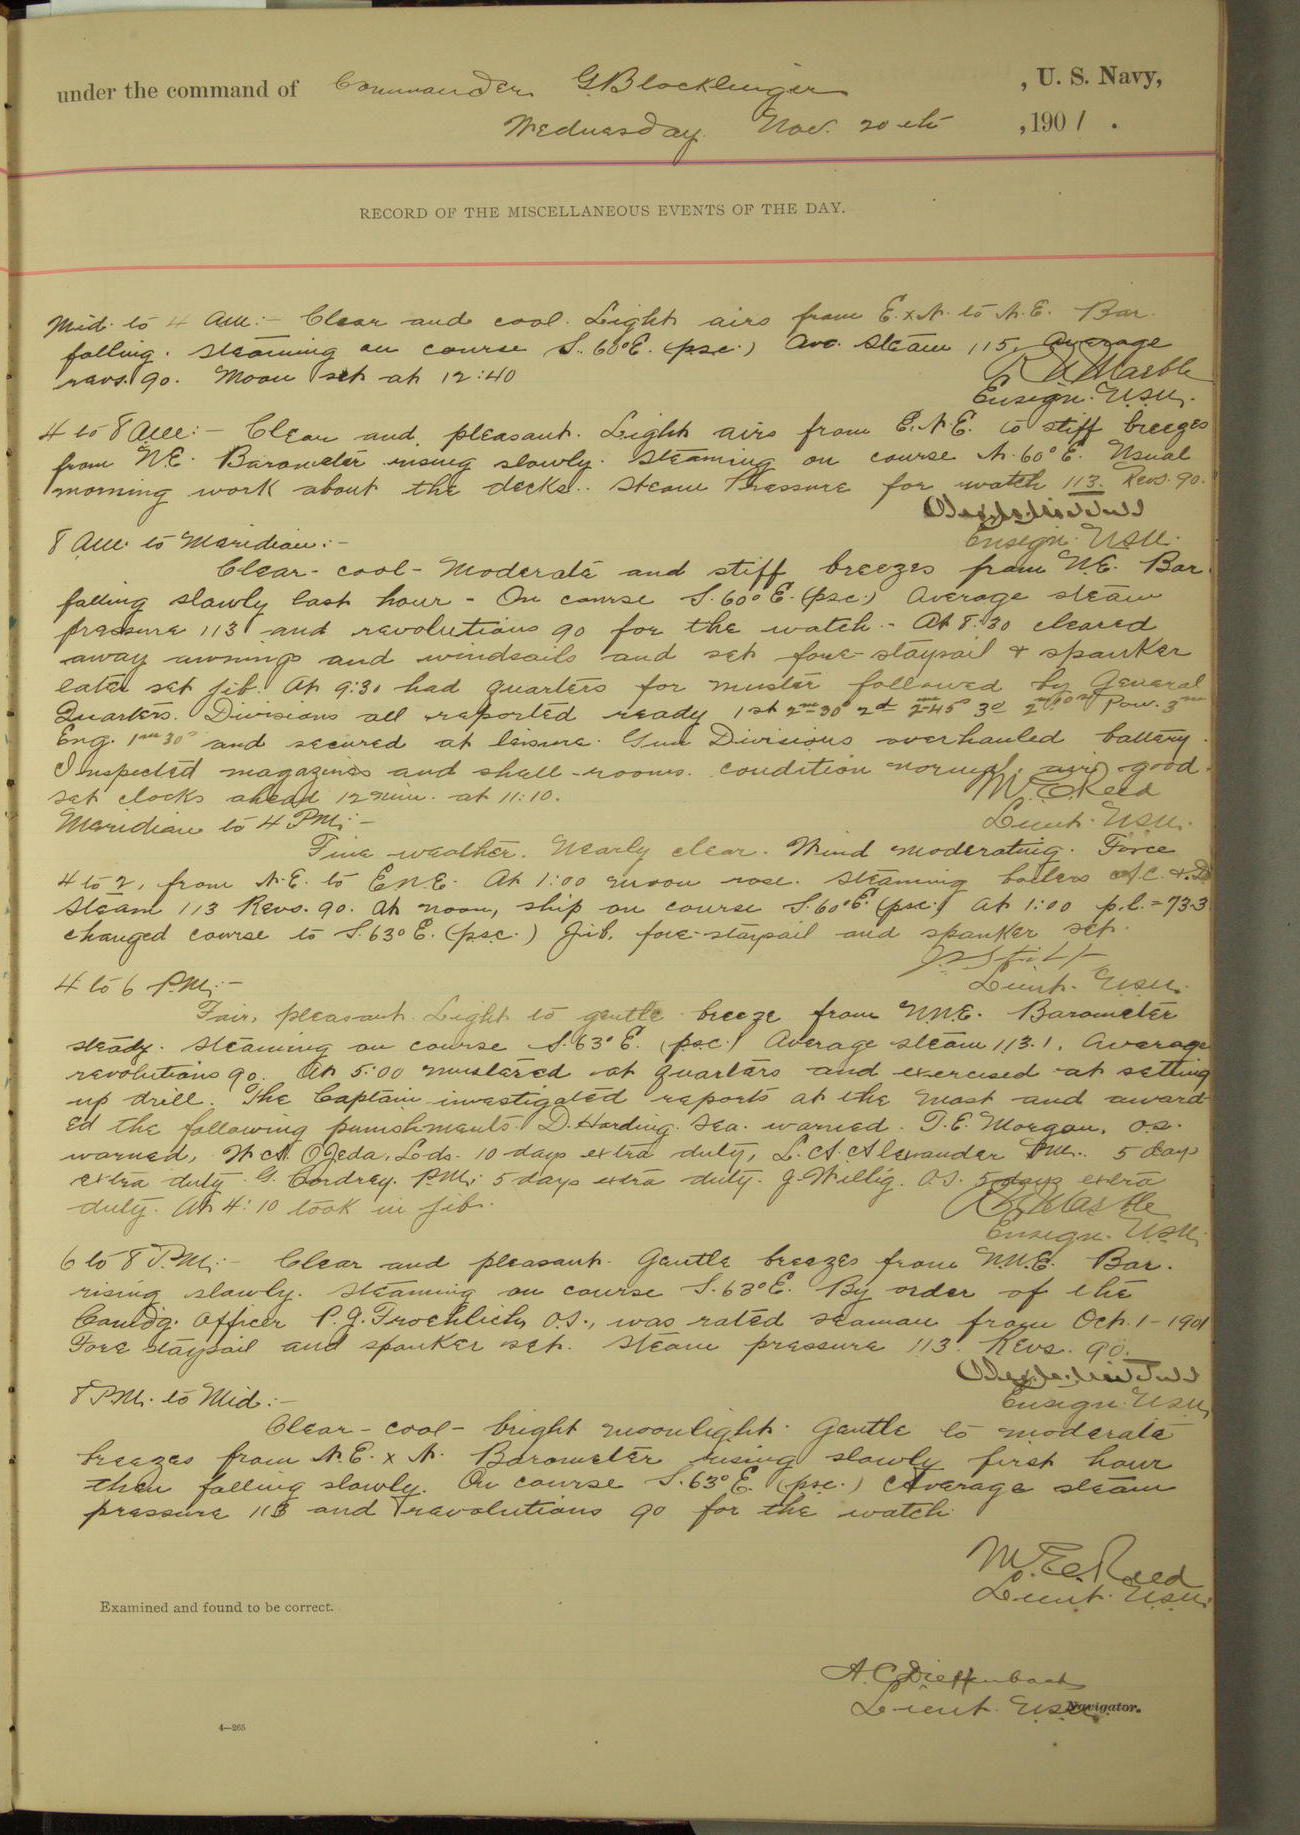 under the command of Commander G. Blocklinger, U. S. Navy,
Wednesday Nov. 20th, 1901.
RECORD OF THE MISCELLANEOUS EVENTS OF THE DAY.
Mid. to 4 AM:- Clear and cool. Light airs from E.xN. to N.E. Bar.
falling. Steaming on course S. 60° E. (psc.) Ave. Steam 115. Average
revs. 90. Moon set at 12:40
Ensign. U.S.N.
4 to 8 AM:- Clear and pleasant. Light airs from E.N.E. to stiff breezes
from N.E. Barometer rising slowly. Steaming on course N. 60° E. Usual
morning work about the decks. Steam Pressure for watch 113. Revs. 90.
Ensign U.S.N.
8 AM. to Meridian:-
Clear - cool - Moderate and stiff breezes from N.E. Bar.
falling slowly last hour - On course S. 60° E. (psc.) Average steam
pressure 113 and revolutions 90 for the watch. - At 8:30 cleared
away awnings and windsails and set fore-staysail & spanker
later set jib. At 9:30 had quarters for muster followed by General
Quarters. Divisions all reported ready 1st 2m 30s 2d 2m 45s 3d Pow. 3m
Eng. 1m 30s and secured at leisure. Gun Divisions overhauled battery.
Inspected magazines and shell-rooms. condition normal, air good.
set clocks ahead 12 min. at 11:10. M. E. Reed
Meridian to 4 PM:- Lieut. U.S.N.
Fine weather. Nearly clear. Wind moderating. Force
4 to 2, from N.E. to ENE. At 1:00 moon rose. Steaming boilers A.C. & D
Steam 113 Revs. 90. At noon, ship on course S. 60° E. (psc.) At 1:00 p.l. = 73.3
changed course to S. 63° E. (psc.) Jib, fore-staysail and spanker set.
4 to 6 P.M:- Lieut. U.S.N.
Fair, pleasant. Light to gentle breeze from N.N.E. Barometer
steady. Steaming on course S. 63° E. (psc.) Average steam 113.1. Average
revolutions 90. At 5:00 mustered at quarters and exercised at setting
up drill. The Captain investigated reports at the mast and award-
ed the following punishments. D. Harding. Sea. warned. T. E. Morgan, O.S.
warned, Ojeda, Lds. 10 days extra duty, L. A. Alexander P.M. 5 days
extra duty. G. Cordrey. P.M. 5 days extra duty. J. Willig. O.S. 5 days extra
duty. At 4:10 took in jib.
Ensign. U.S.N.
6 to 8 P.M:- Clear and pleasant. Gentle breezes from N.N.E. Bar.
rising slowly. Steaming on course S. 63° E. By order of the
Comdg. Officer P. J. Froehlich, O.S., was rated seaman from Oct. 1 - 1901
Fore staysail and spanker set. Steam pressure 113. Revs. 90.
8 P.M. to Mid:- Ensign U.S.N.
Clear - cool - bright moonlight. Gentle to moderate
breezes from N.E. x N. Barometer rising slowly first hour
then falling slowly. On course S. 63° E. (psc.) Average steam
pressure 113 and revolutions 90 for the watch.
M. E. Reed
Lieut. U.S.N.
Examined and found to be correct.
A. C. Dieffenbach
Lieut. U.S.N. Navigator.
4—265